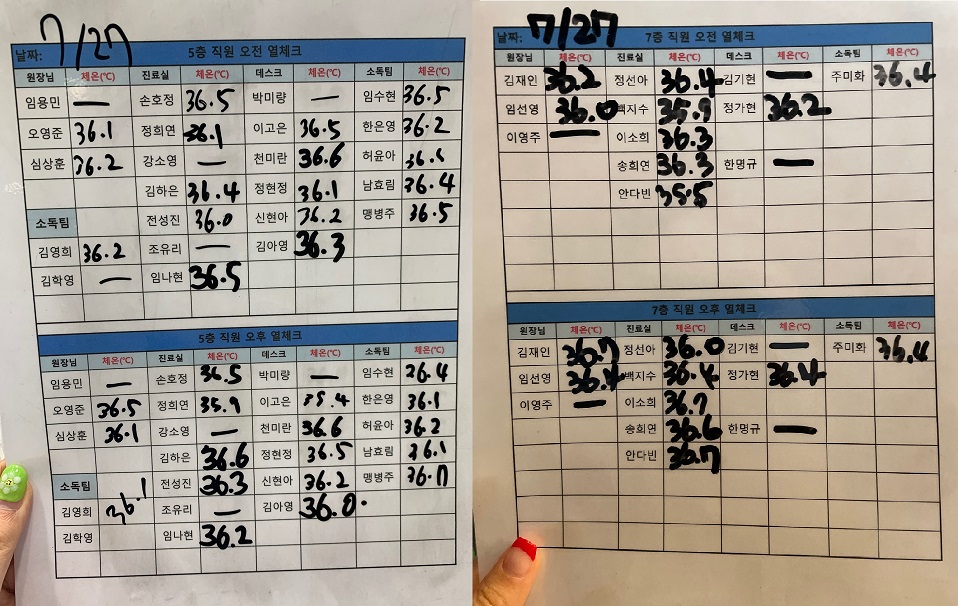 날짜: 7/27
5층 직원 오전 열체크
원장님 체온(℃) 진료실 체온(℃) 데스크 체온(℃) 소독팀 체온(℃)
임용민 — 손호정 36.5 박미량 — 임수현 36.5
오영준 36.1 정희연 36.1 이고은 36.5 한은영 36.2
심상훈 36.2 강소영 — 천미란 36.6 허윤아
김하은 36.4 정현정 36.1 남효림 36.4
소독팀 전성진 36.0 신현아 36.2 맹병주 36.5
김영희 36.2 조유리 — 김아영 36.3
김학영 — 임나현 36.5
5층 직원 오후 열체크
원장님 체온(℃) 진료실 체온(℃) 데스크 체온(℃) 소독팀 체온(℃)
임용민 — 손호정 36.5 박미량 — 임수현 26.4
오영준 36.5 정희연 35.9 이고은 35.4 한은영 36.1
심상훈 36.1 강소영 — 천미란 36.6 허윤아 36.2
김하은 36.6 정현정 36.5 남효림 36.1
소독팀 전성진 36.3 신현아 36.2 맹병주 36.7
김영희 36.1 조유리 — 김아영 36.0
김학영 임나현 36.2
날짜: 7/27
7층 직원 오전 열체크
원장님 체온(℃) 진료실 체온(℃) 데스크 체온(℃) 소독팀 체온(℃)
김재인 36.2 정선아 36.4 김기현 — 주미화 36.4
임선영 36.0 백지수 35.9 정가현 36.2
이영주 — 이소희 36.3
송희연 36.3 한명규 —
안다빈 35.5
7층 직원 오후 열체크
원장님 체온(℃) 진료실 체온(℃) 데스크 체온(℃) 소독팀 체온(℃)
김재인 36.7 정선아 36.0 김기현 — 주미화 36.4
임선영 36.4 백지수 36.4 정가현 36.4
이영주 — 이소희 36.7
송희연 36.6 한명규 —
안다빈 36.7